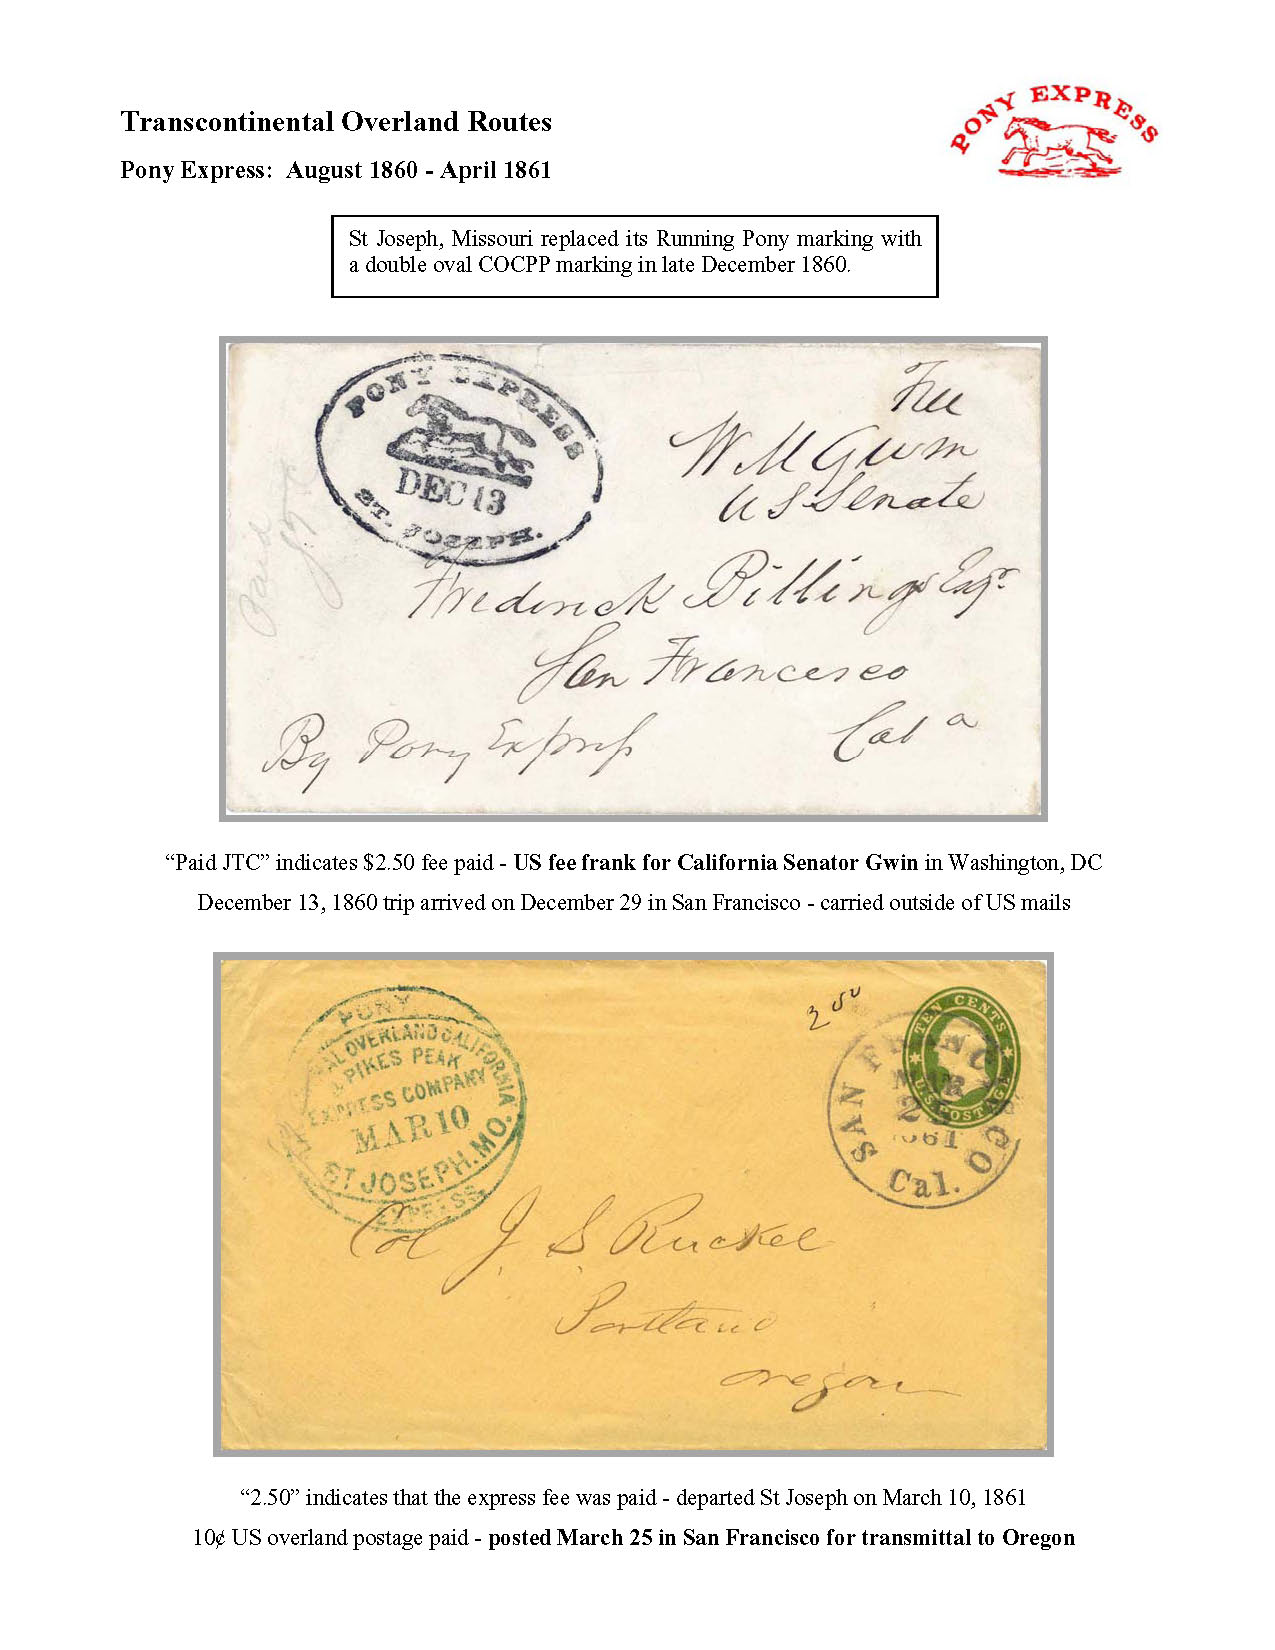 Transcontinental Overland Routes
PONY EXPRESS
Pony Express: August 1860 - April 1861
St Joseph, Missouri replaced its Running Pony marking with
a double oval COCPP marking in late December 1860.
PONY EXPRESS
DEC 13
ST. JOSEPH.
Free
W M Gwin
U S Senate
Paid
Frederick Billings Esqr
San Francesco
Cal a
By Pony Express
“Paid JTC” indicates $2.50 fee paid - US fee frank for California Senator Gwin in Washington, DC
December 13, 1860 trip arrived on December 29 in San Francisco - carried outside of US mails
PONY
OVERLAND CALIFORNIA
PIKES PEAK
EXPRESS COMPANY
MAR 10
ST JOSEPH. MO.
EXPRESS
2 50
TEN CENTS
U.S. POSTAGE
SAN FRANCISCO
MAR
1861
Cal.
Col J. S. Ruckel
Portland
Oregon
“2.50” indicates that the express fee was paid - departed St Joseph on March 10, 1861
10¢ US overland postage paid - posted March 25 in San Francisco for transmittal to Oregon